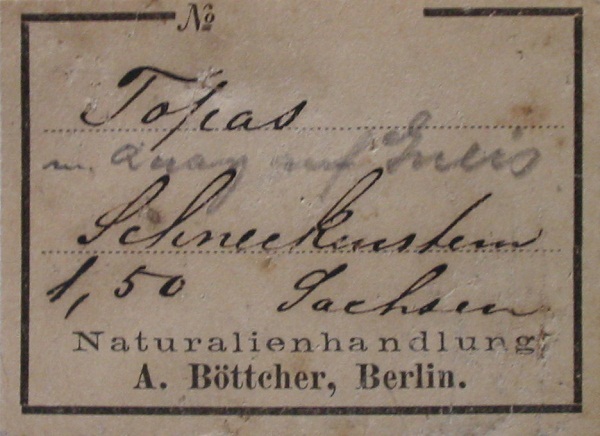 No
Topas
m. Quarz auf Gneis
Schneckenstein
1,50 Sachsen
Naturalienhandlung
A. Böttcher, Berlin.